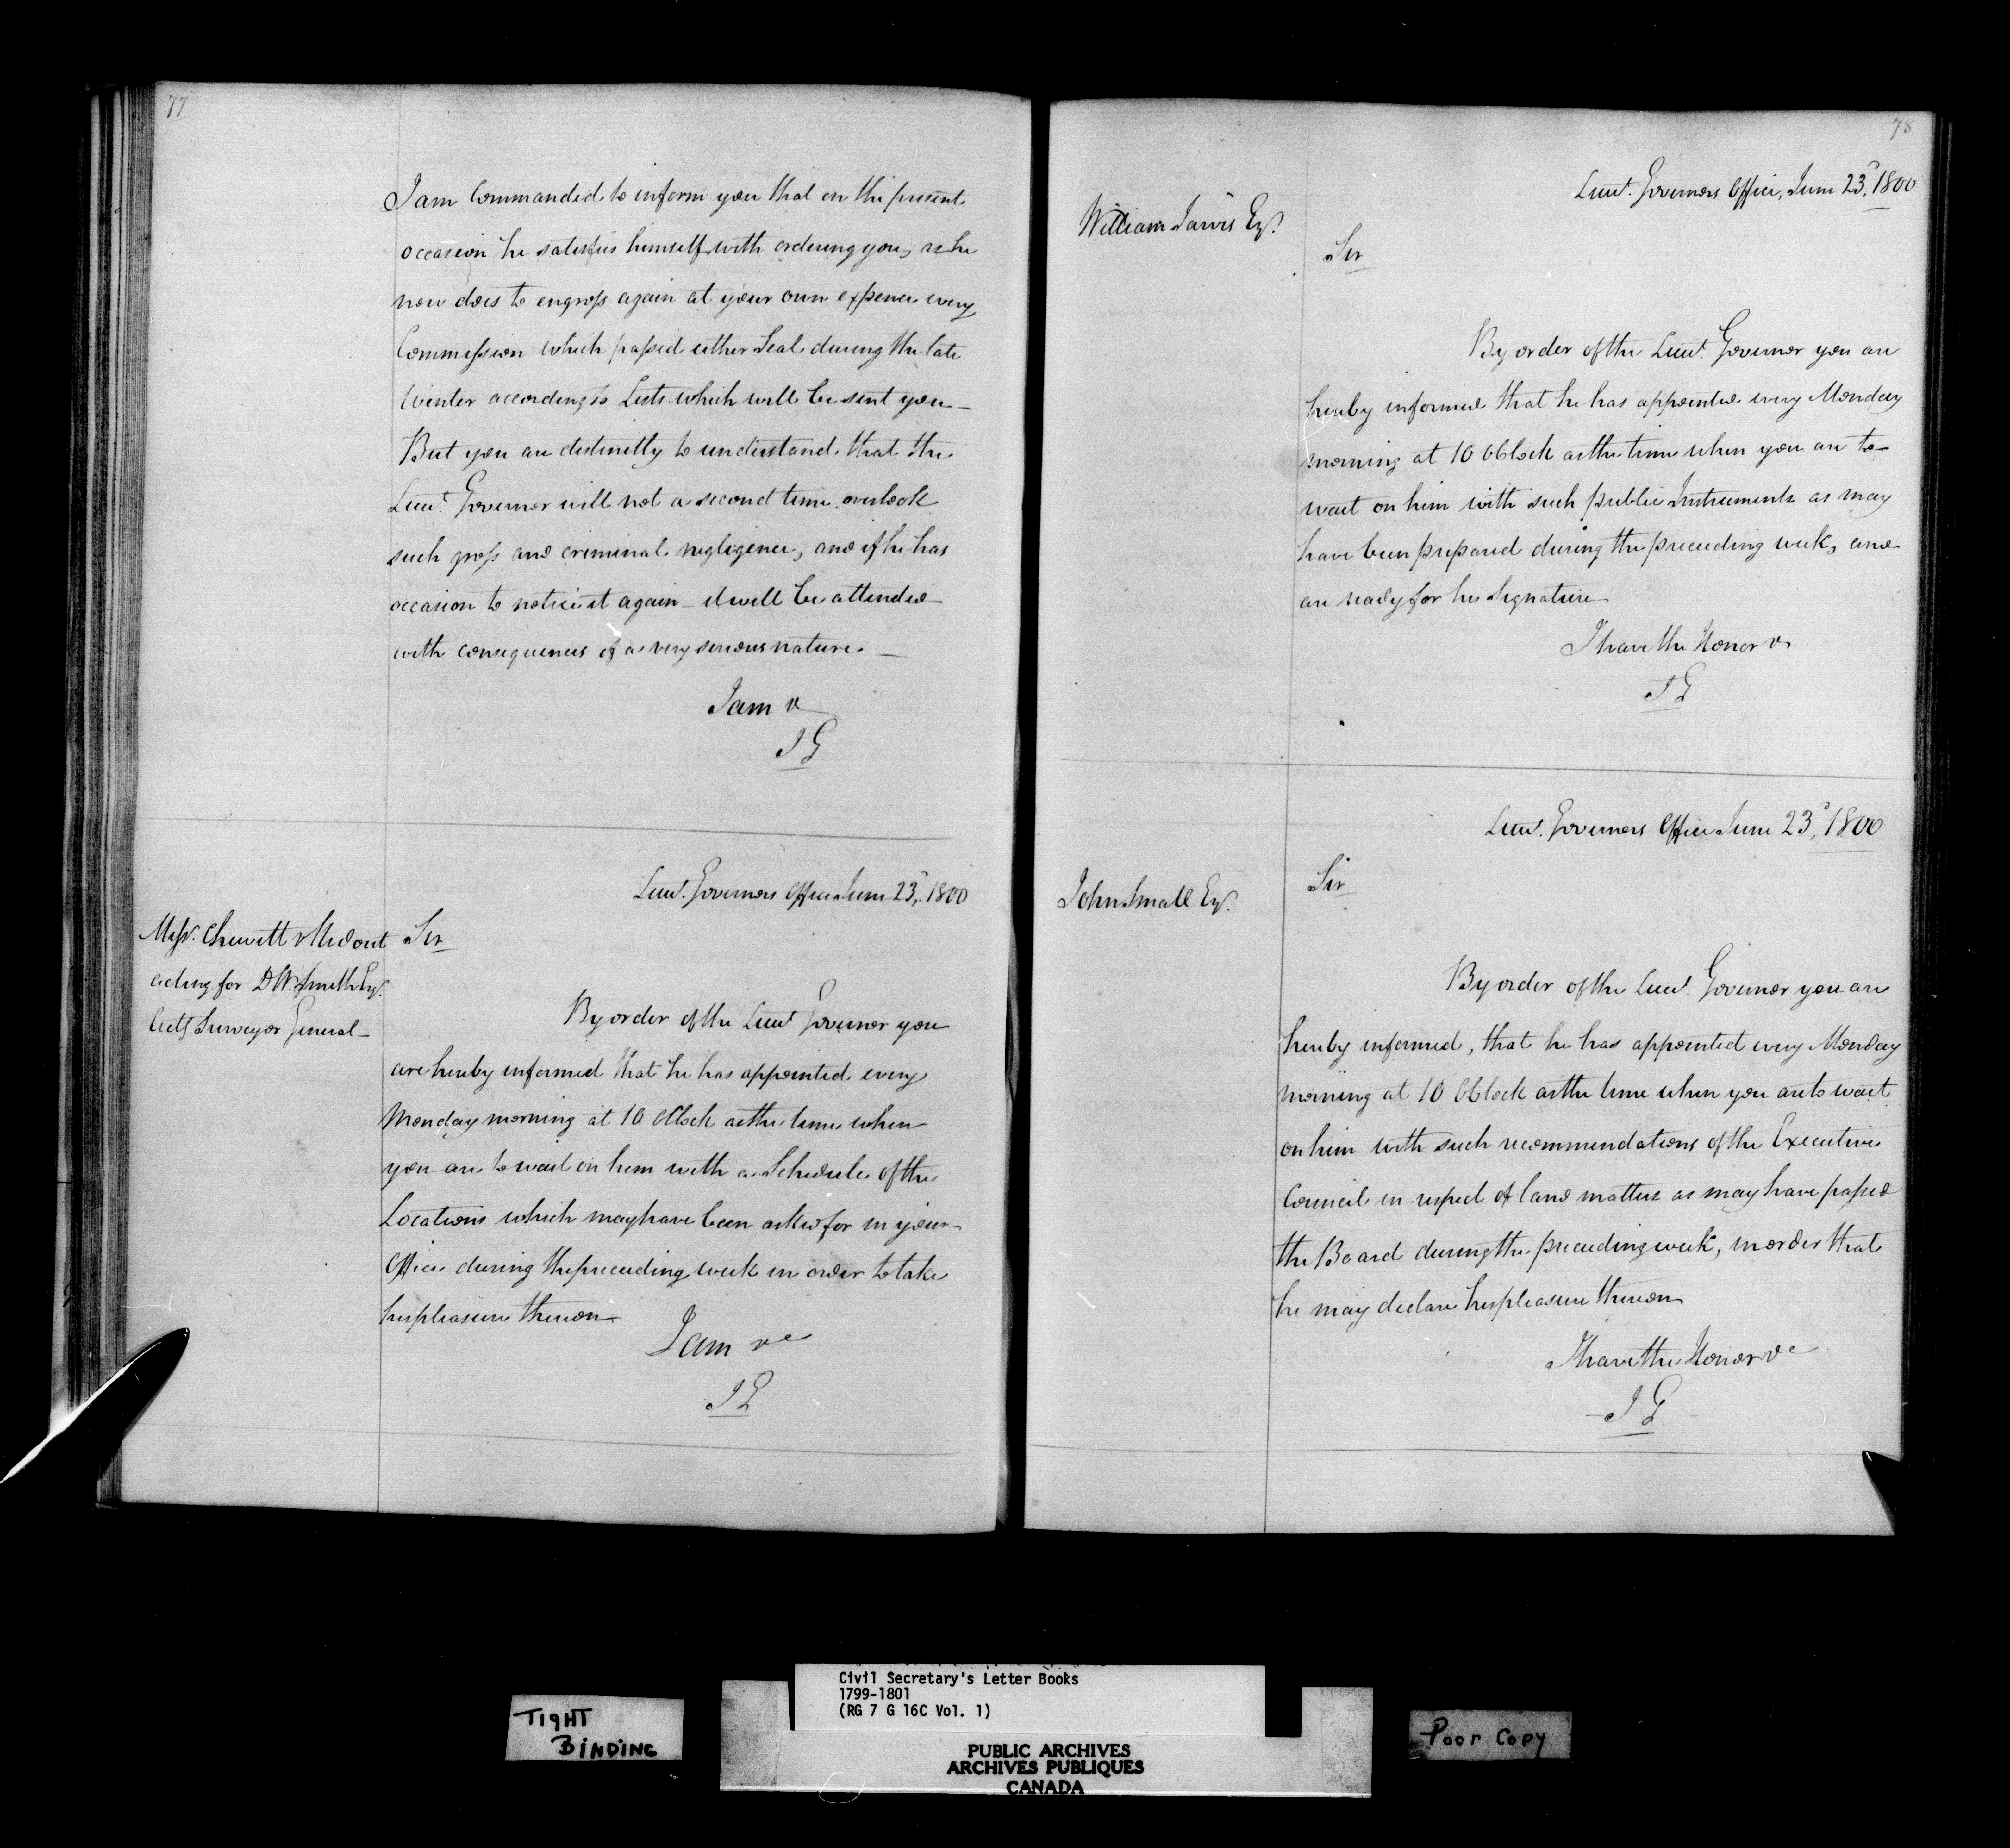 77
I am Commanded to inform you that on the present
occasion he satisfies himself with ordering you, as he
now does to engross again at your own expence every
Commission which passed either Seal during the late
Winter according to Lists which will be sent you —
But you are distinctly to understand that the
Lieut. Governor will not a second time overlook
such gross and criminal negligence, and if he has
occasion to notice it again — it will be attended —
with consequences of a very serious nature. —
I am &
J G
Lieut. Governors Office June 23d, 1800
Messrs. Chewitt & Ridout
acting for D W Smith Esqr.
Actg Surveyor General —
Sir
By order of the Lieut Governor you
are hereby informed that he has appointed every
Monday morning at 10 OClock as the time when
you are to wait on him with a Schedule of the
Locations which may have been asked for in your
Office during the preceeding week in order to take
his pleasure thereon
I am &c
J G
78
Lieut. Governors Office, June 23d, 1800
William Jarvis Esqr.
Sir
By order of the Lieut. Governor you are
hereby informed that he has appointed every Monday
morning at 10 OClock as the time when you are to
wait on him with such public Instruments as may
have been prepared during the preceeding week, and
are ready for his Signature
I have the Honor &
J G
Lieut. Governors Office June 23d, 1800
John Small Esqr.
Sir
By order of the Lieut. Governor you are
hereby informed, that he has appointed every Monday
morning at 10 OClock as the time when you are to wait
on him with such recommendations of the Executive
Council in respect of land matters as may have passed
the Board during the preceeding week, in order that
he may declare his pleasure thereon
I have the Honor &c
— J G —
TIGHT
BINDING
Civil Secretary's Letter Books
1799-1801
(RG 7 G 16C Vol. 1)
PUBLIC ARCHIVES
ARCHIVES PUBLIQUES
CANADA
Poor Copy